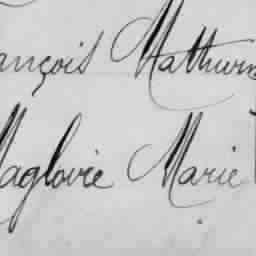 ançois Mathurin
Magloire Marie